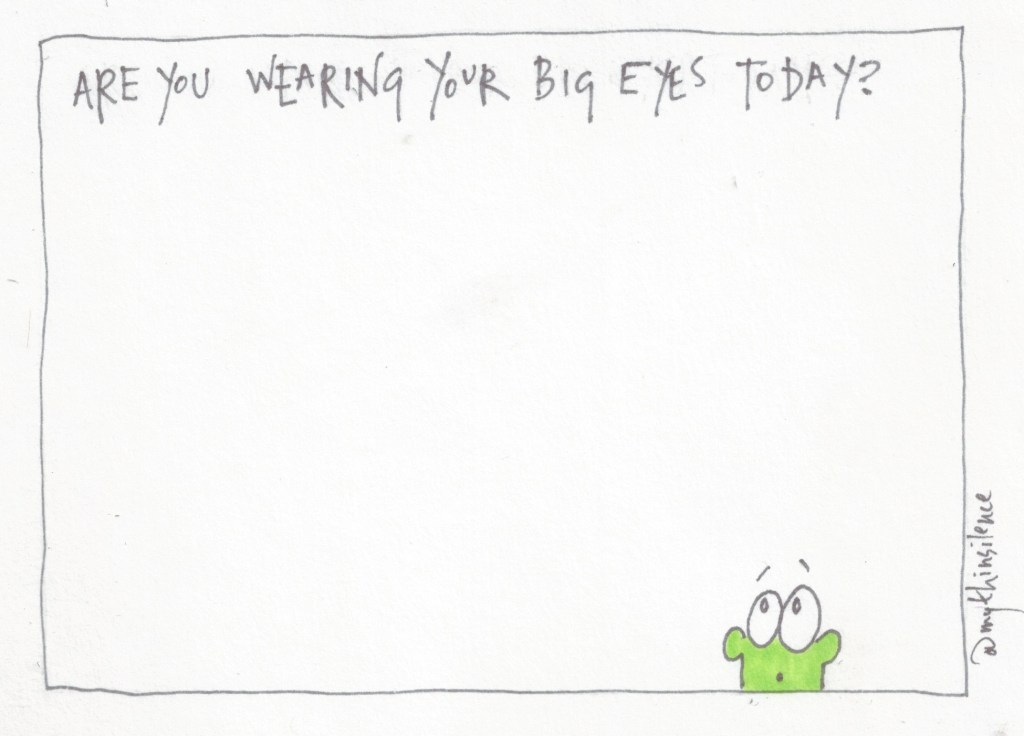 ARE YOU WEARING YOUR BIG EYES TODAY?
@mythinsilence